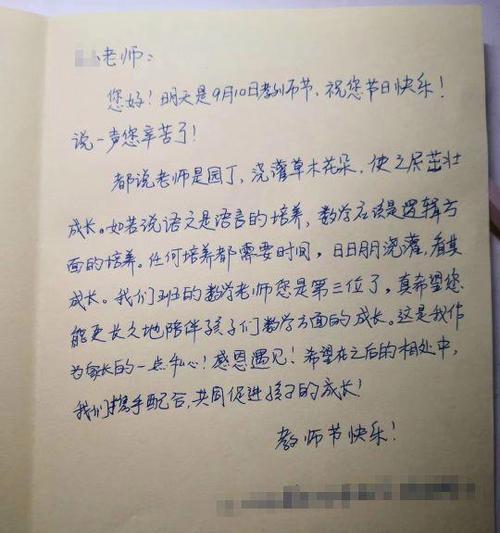 老师：
您好！明天是9月10日教师节，祝您节日快乐！
说一声您辛苦了！
都说老师是园丁，浇灌草木花朵，使之尽茁壮
成长。如若说语文是语言的培养，数学应该是逻辑方
面的培养。任何培养都需要时间，日日朋浇灌，看其
成长。我们班的数学老师您是第三位了，真希望您
能更长久地陪伴孩子们数学方面的成长。这是我作
为家长的一点私心！感恩遇见！希望在之后的相处中，
我们携手配合，共同促进孩子的成长！
教师节快乐！